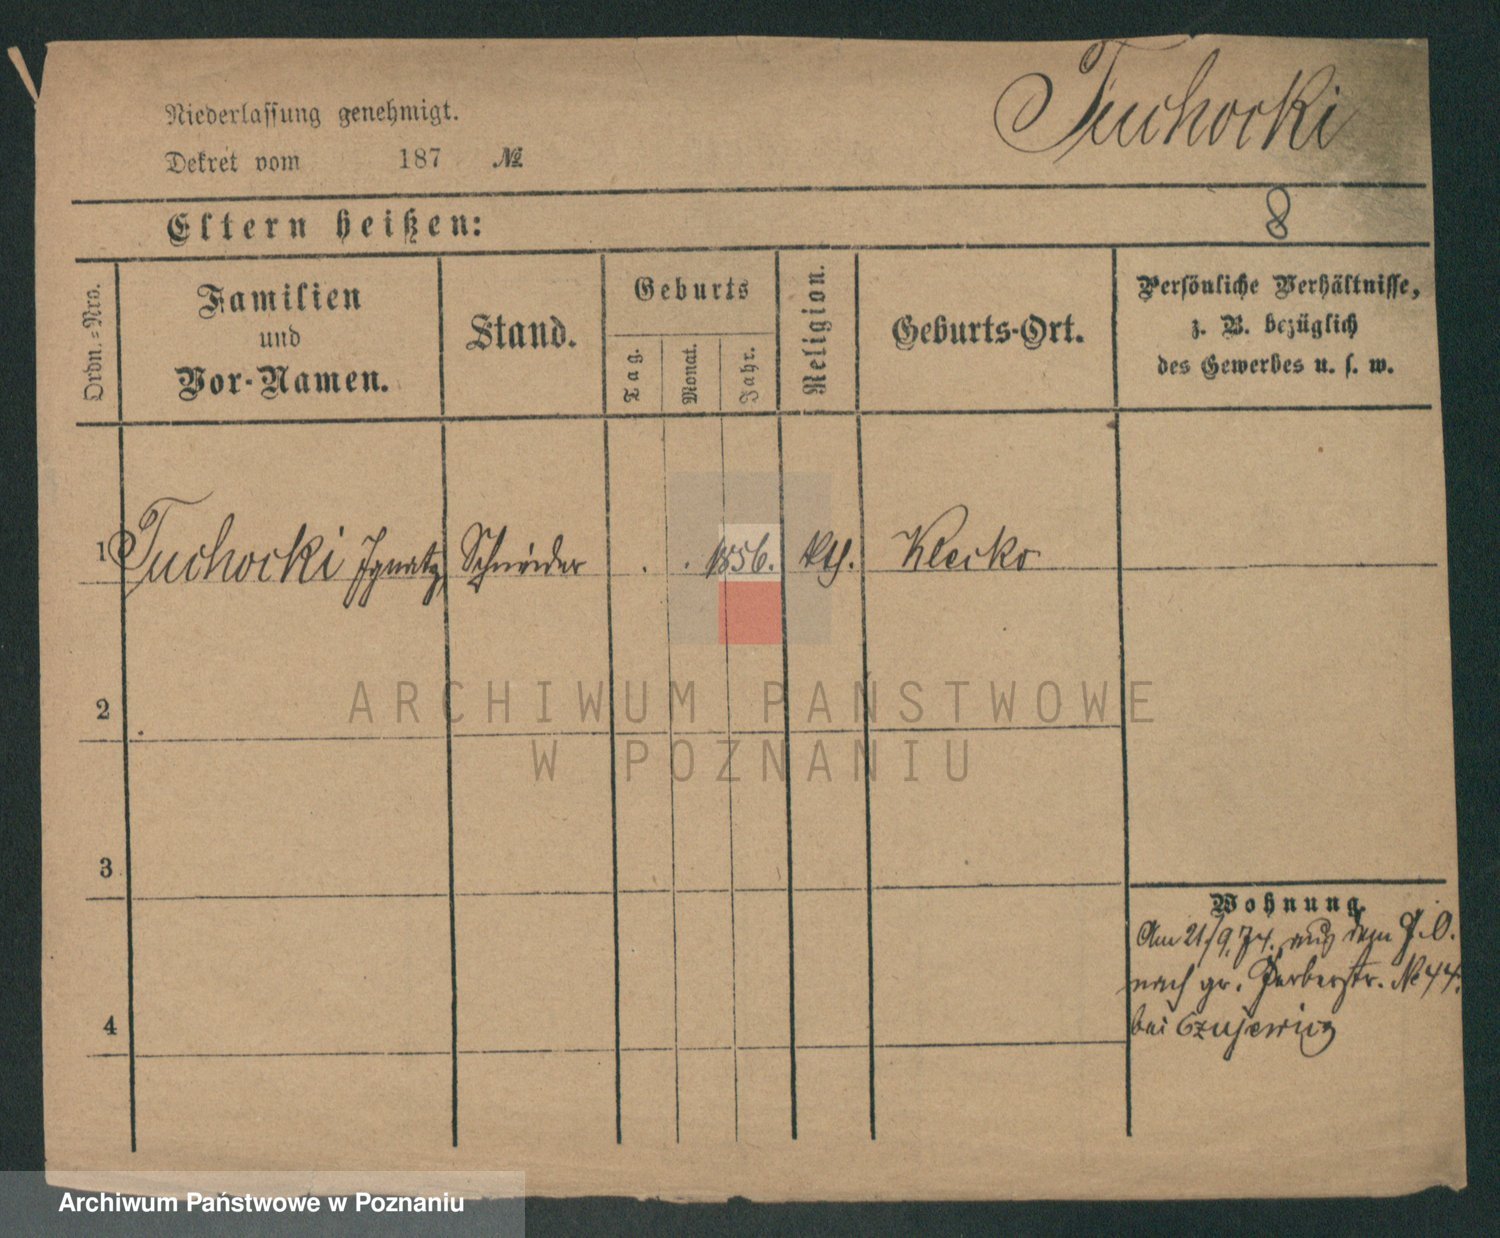 Tuchocki
Niederlassung genehmigt.
Dekret vom 187 №
8
Eltern heißen:
Ordn.=Nro.
Familien
und
Vor-Namen.
Stand.
Geburts
Tag.
Monat.
Jahr.
Religion.
Geburts-Ort.
Persönliche Verhältnisse,
z. B. bezüglich
des Gewerbes u. s. w.
1 Tuchocki Ignatz Schneider . . 1856. kth. Klecko
ARCHIWUM PAŃSTWOWE
W POZNANIU
2
3
Wohnung.
Am 21/9. 74. aus dem J. O.
nach gr. Gerberstr. № 44.
bei
4
Archiwum Państwowe w Poznaniu